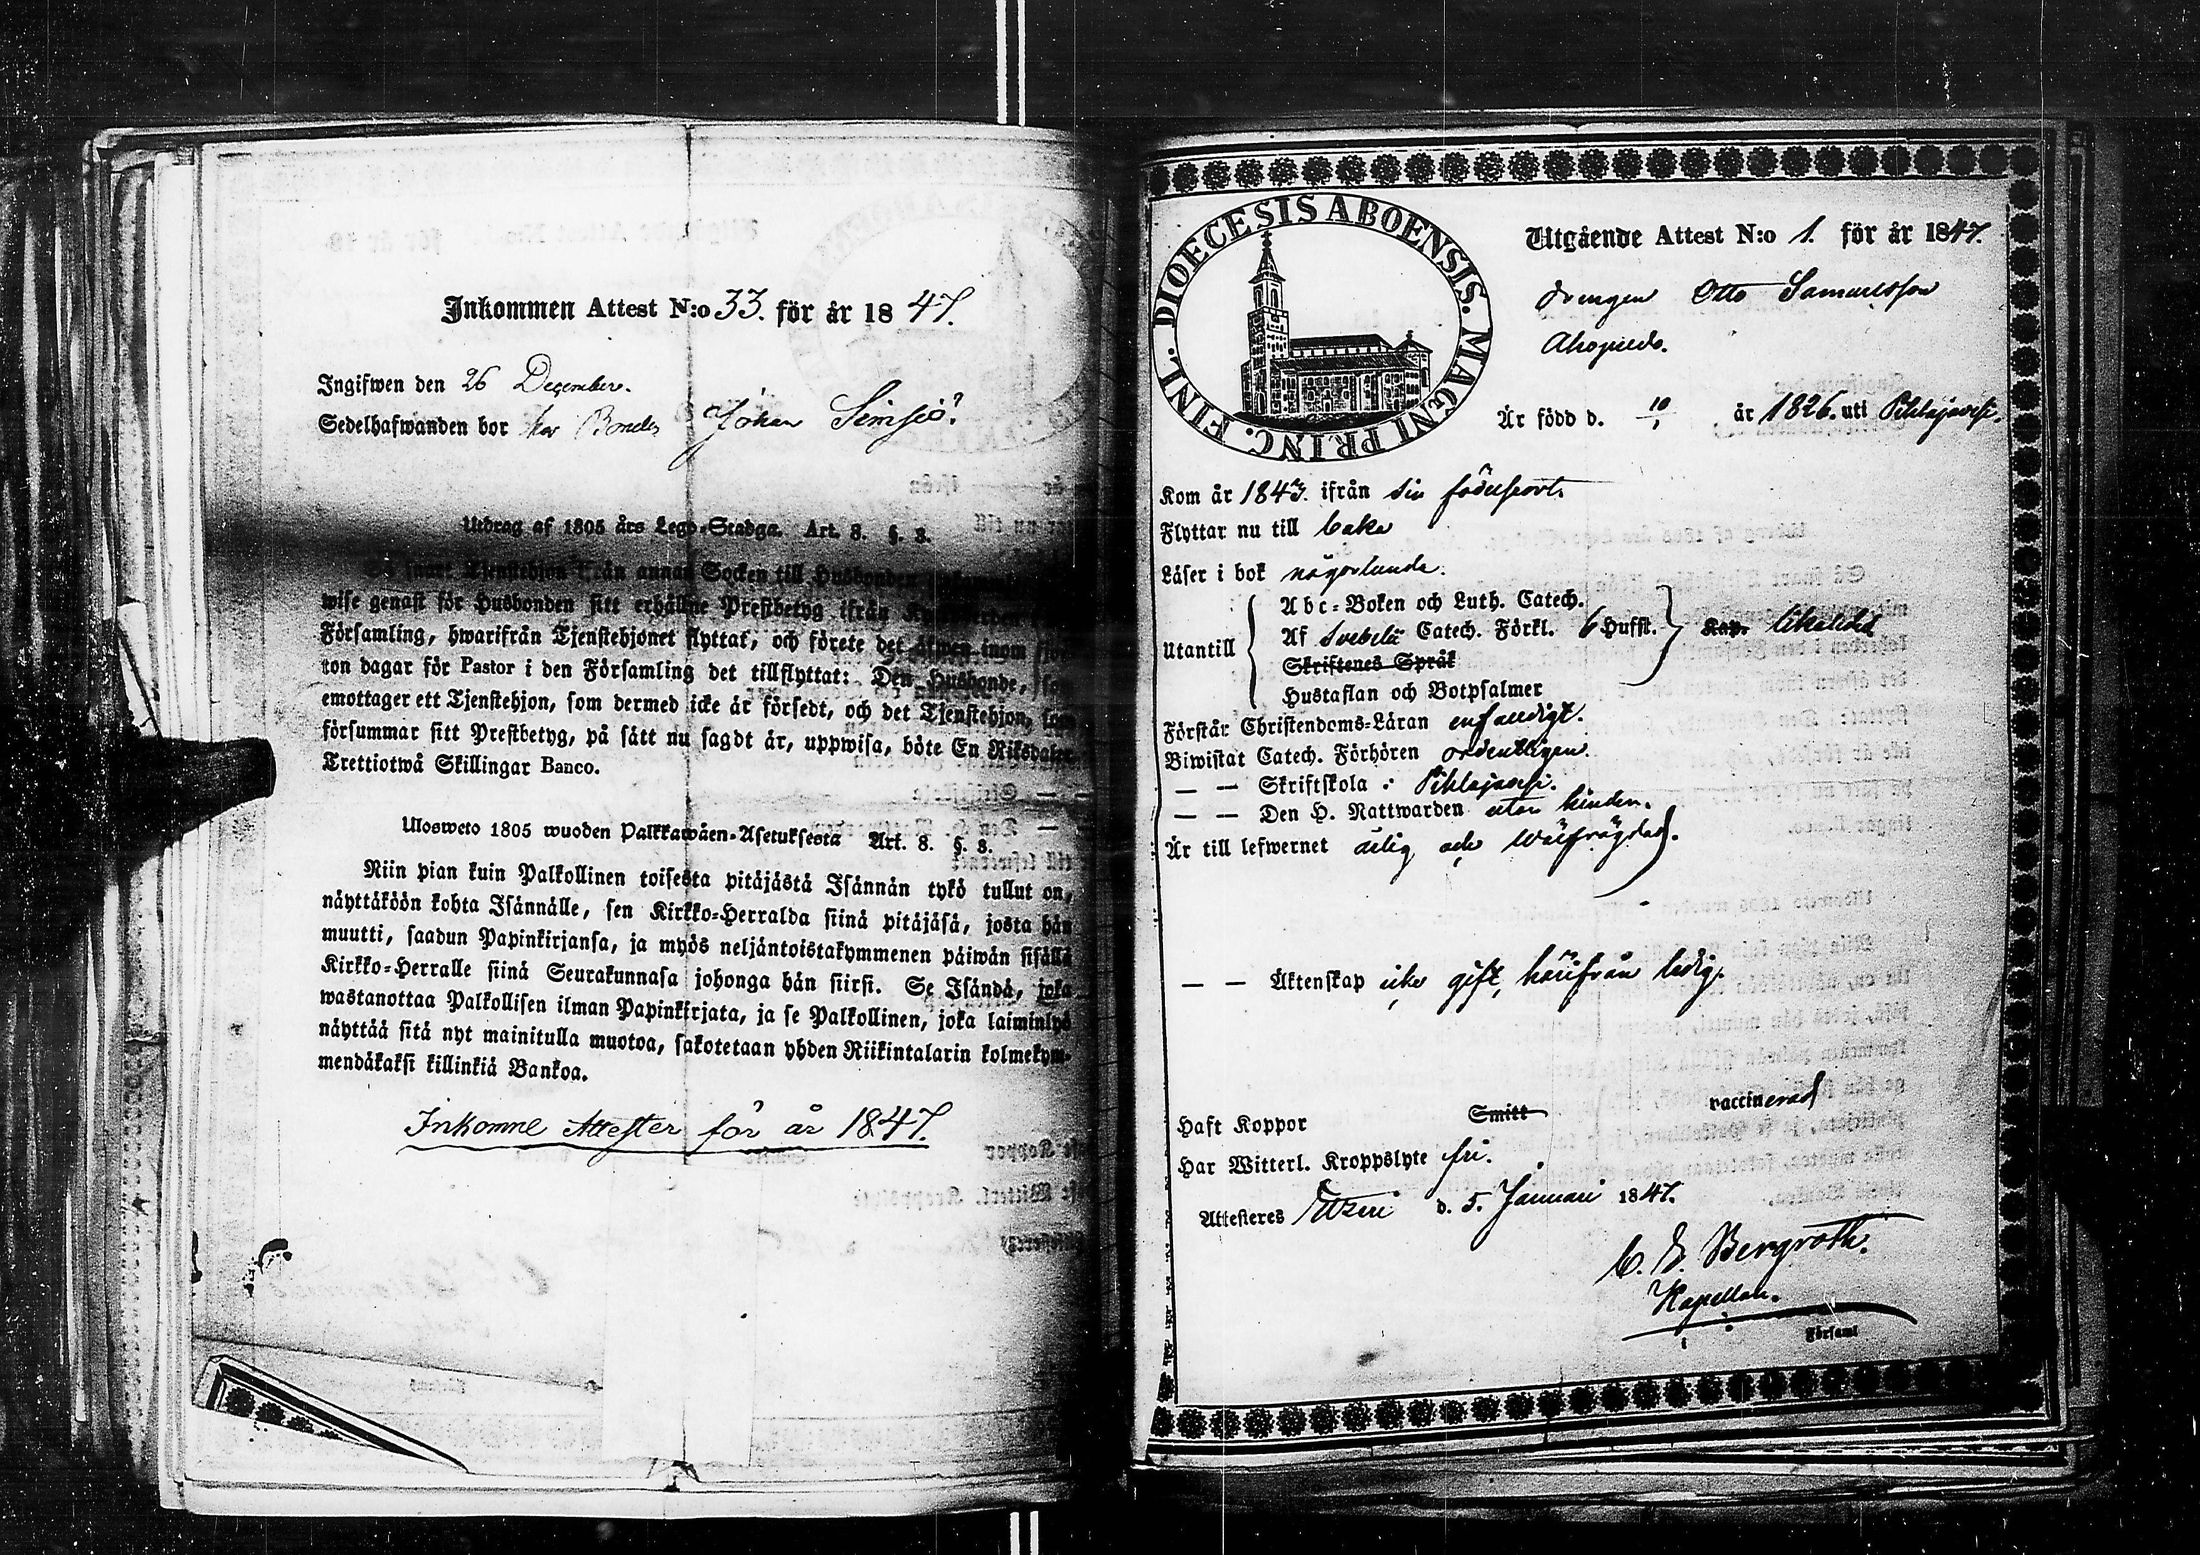 Inkommen Attest N:o 33. för år 1847.
Ingifwen den 26 December.
Sedelhafwanden bor hos Bonden Johan Simsiö?
Utdrag af 1805 års Lego-Stadga. Art. 8. §. 3.
Så snart Tjenstehjon från annan Socken till Husbonden
wise genast för Husbonden sitt erhållne Prestbetyg ifrån
Församling, hwarifrån Tjenstehjonet flyttat, och förete det äfwen inom fjor-
ton dagar för Pastor i den Församling det tillflyttat: Den Husbonde, som
emottager ett Tjenstehjon, som dermed icke är försedt, och det Tjenstehjon, som
försummar sitt Prestbetyg, på sätt nu sagdt är, uppwisa, böte En Riksdaler
Trettiotwå Skillingar Banco.
Ulosweto 1805 wuoden Palkkawäen-Asetuksesta Art. 8. §. 3.
Niin pian kuin Palkollinen toisesta pitäjästä Isännän tykö tullut on,
näyttäköön kohta Isännälle, sen Kirkko-Herralda siinä pitäjäsä, josta hän
muutti, saadun Papinkirjansa, ja myös neljäntoistakymmenen päiwän sisällä
Kirkko-Herralle siinä Seurakunnasa johonga hän siirsi. Se Isändä, joka
wastanottaa Palkollisen ilman Papinkirjata, ja se Palkollinen, joka laiminlyö
näyttää sitä nyt mainitulla muotoa, sakotetaan yhden Riikintalarin kolmekym-
mendäkaksi killinkiä Bankoa.
Inkomne Attester för år 1847.
DIOECESIS ABOENSIS. MAGNI PRINC. FINL.
Utgående Attest N:o 1. för år 1847.
Drengen Otto Samuelsson
Är född d. 10/1 år 1826. uti Pihlajavesi.
Kom år 1843. ifrån sin födelseort.
Flyttar nu till
Läser i bok någorlunda.
Abc-Boken och Luth. Catech.
Utantill Af Svebelii Catech. Förkl. 6 Hufst. Kap.
Skriftenes Språk
Hustaflan och Botpsalmer
Förstår Christendoms-Läran enfaldigt.
Biwistat Catech. Förhören ordentligen.
— — Skriftskola i Pihlajavesi.
— — Den H. Nattwarden utan hinder.
Är till lefwernet ärlig och wälfrägdad.
— — Äktenskap icke gift, härifrån ledig.
Haft Koppor Smitt vaccinerad
Har Witterl. Kroppslyte fri.
Attesteres Etzeri d. 5. Januari 1847.
C. E. Bergroth.
Kapellan.
Församl